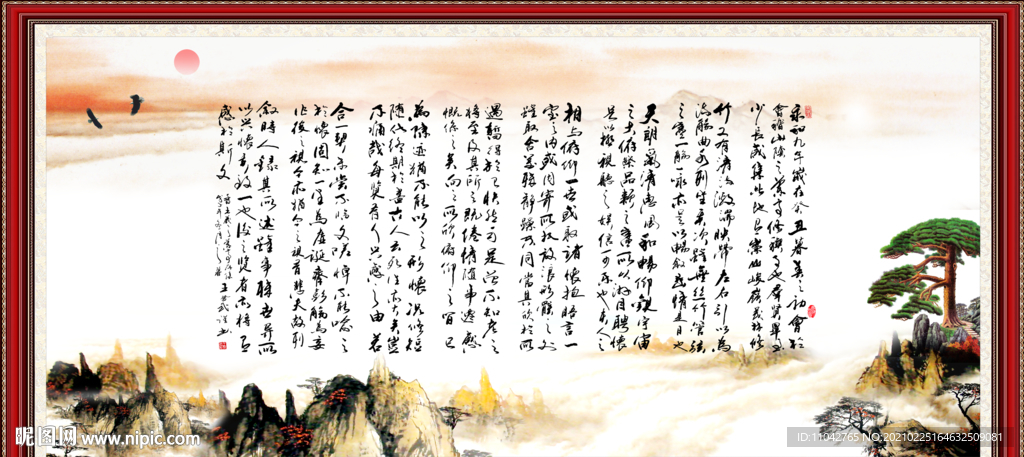 永和九年歲在癸丑暮春之初會於
會稽山陰之蘭亭修禊事也群賢畢至
少長咸集此地有崇山峻嶺茂林修
竹又有清流激湍映帶左右引以為
流觴曲水列坐其次雖無絲竹管絃
之盛一觴一詠亦足以暢敘幽情是日也
天朗氣清惠風和暢仰觀宇宙
之大俯察品類之盛所以遊目騁懷
足以極視聽之娛信可樂也夫人之
相與俯仰一世或取諸懷抱晤言一
室之內或因寄所託放浪形骸之外
雖取舍萬殊靜躁不同當其欣於所
遇暫得於己快然自足不知老之
將至及其所之既倦情隨事遷感
慨係之矣向之所欣俯仰之間已
為陳迹猶不能以之興懷況修短
隨化終期於盡古人云死生亦大矣豈
不痛哉每覽昔人興感之由若
合一契未嘗不臨文嗟悼不能喻之
於懷固知一死生為虛誕齊彭殤為妄
作後之視今亦猶今之視昔悲夫故列
敘時人錄其所述雖事殊世異所
以興懷其致一也後之覽者亦將有
感於斯文
昵图网 www.nipic.com
ID:11042765 NO:20210225164632509081